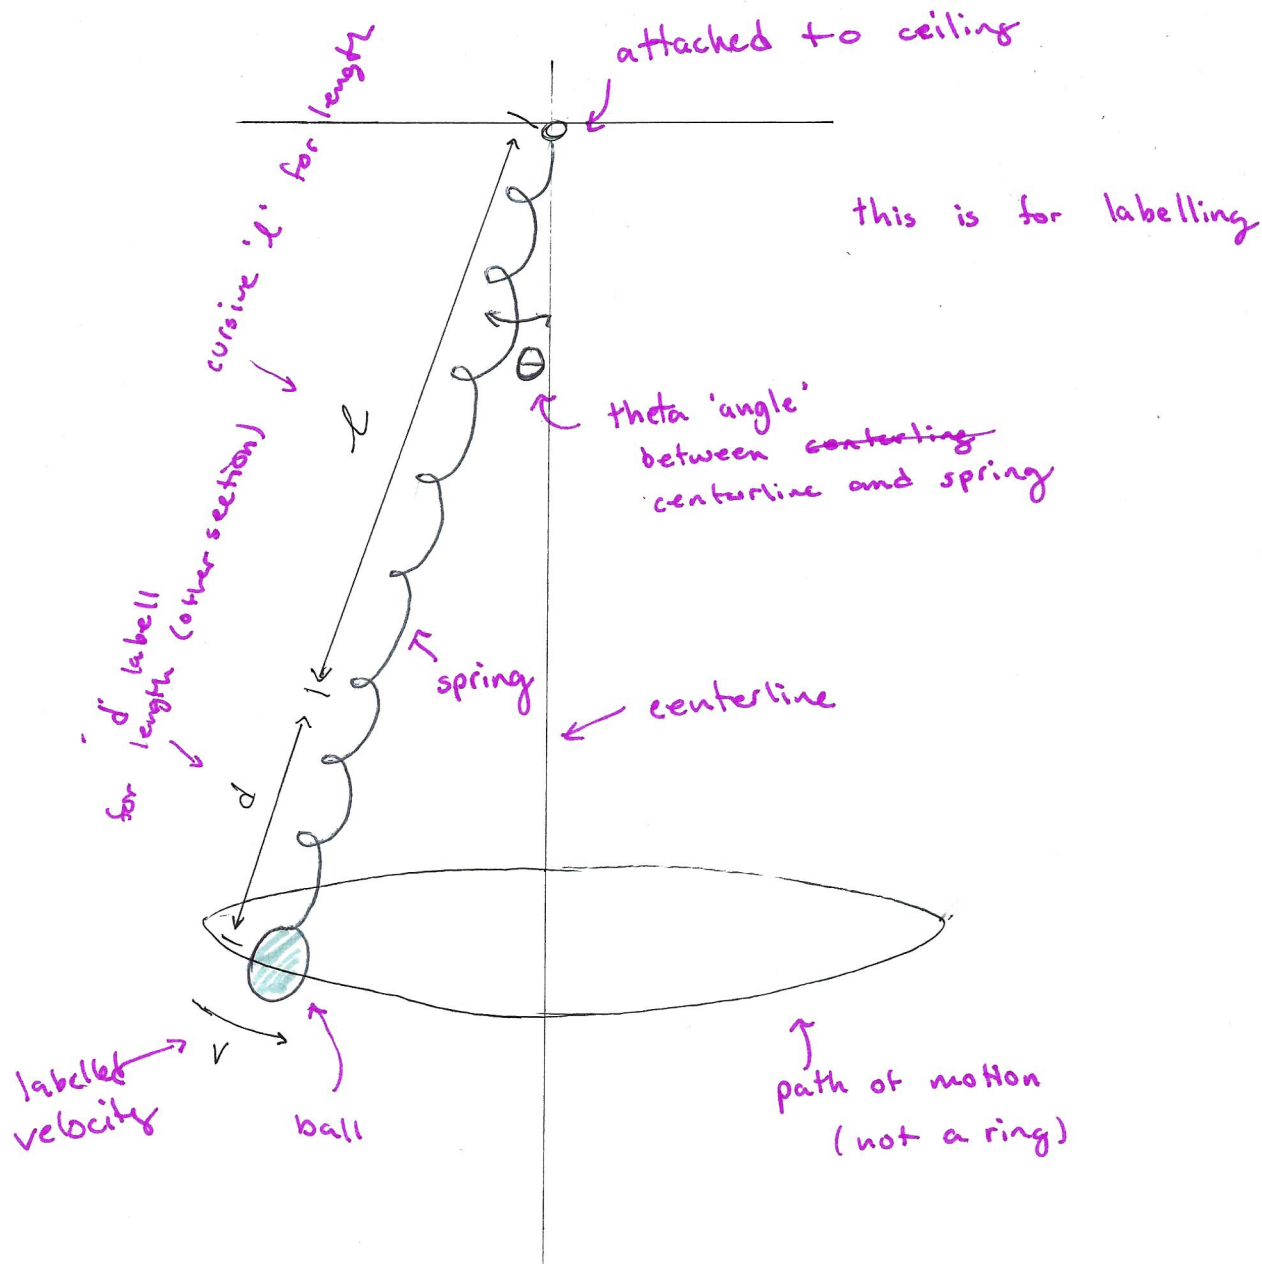 attached to ceiling
this is for labelling
cursive 'l' for length
l
θ
theta 'angle'
between centerline
centerline and spring
'd' labell
for length (other section)
d
spring
centerline
v
labelled
velocity
ball
path of motion
(not a ring)